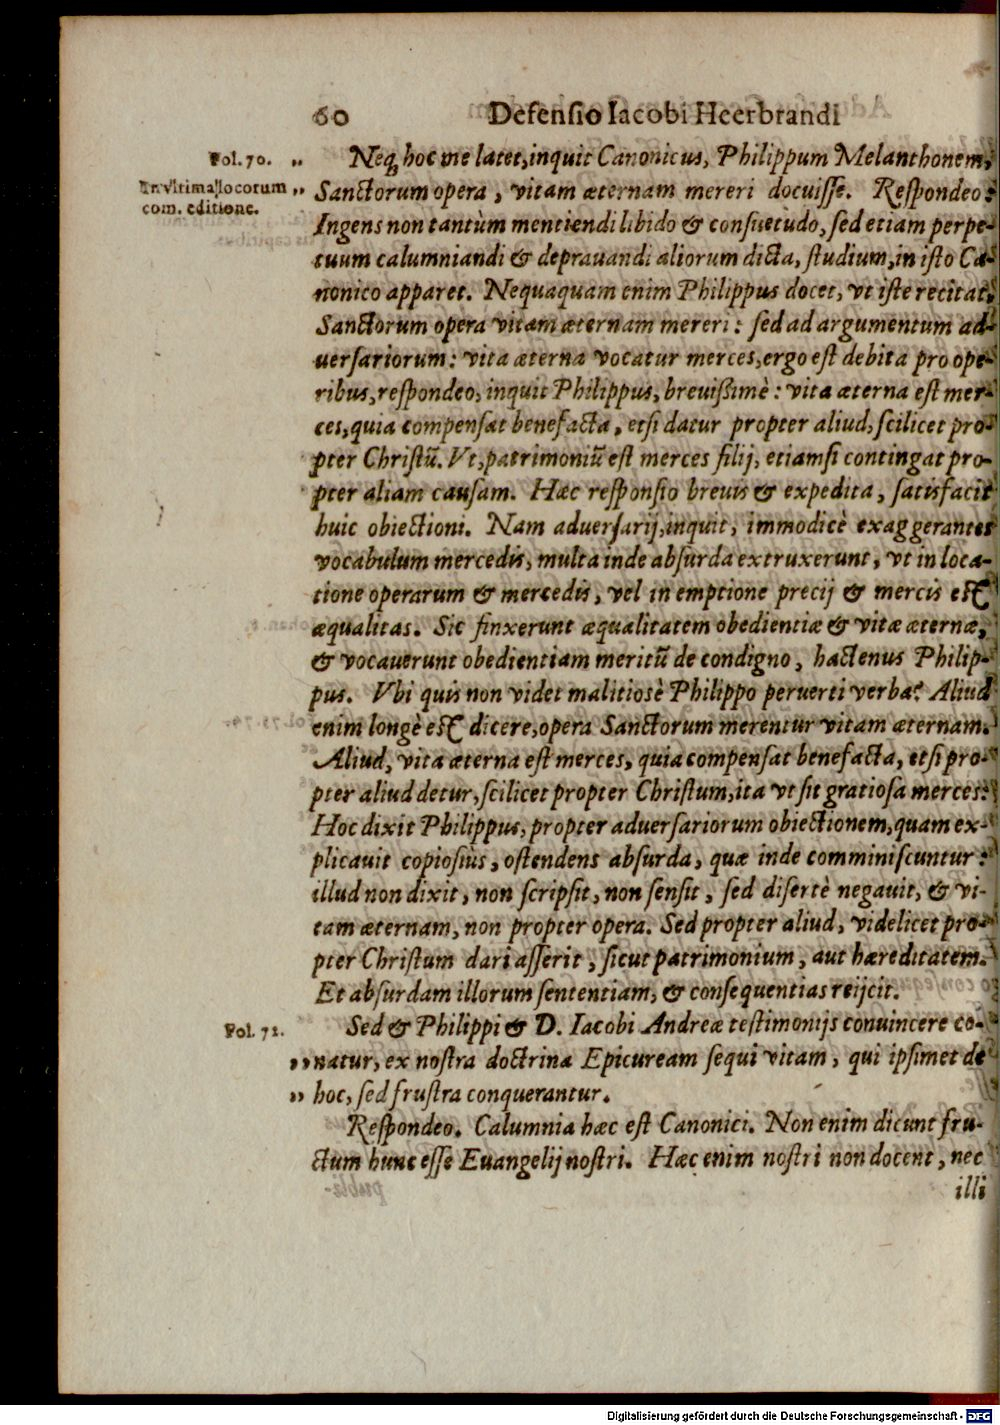 60 Defensio Iacobi Heerbrandi
Fol. 70. „ Neq́; hoc me latet, inquit Canonicus, Philippum Melanthonem,
In vltima locorum „ Sanctorum opera, vitam æternam mereri docuisse. Respondeo:
com. editione.
Ingens non tantùm mentiendi libido & consuetudo, sed etiam perpe-
tuum calumniandi & deprauandi aliorum dicta, studium, in isto Ca-
nonico apparet. Nequaquam enim Philippus docet, vt iste recitat,
Sanctorum opera vitam æternam mereri: sed ad argumentum ad-
uersariorum: vita æterna vocatur merces, ergo est debita pro ope-
ribus, respondeo, inquit Philippus, breuißimè: vita æterna est mer-
ces, quia compensat benefacta, etsi datur propter aliud, scilicet pro-
pter Christū. Vt, patrimoniū est merces filij, etiamsi contingat pro-
pter aliam causam. Hæc responsio breuis & expedita, satisfacit
huic obiectioni. Nam aduersarij, inquit, immodicè exaggerantes
vocabulum mercedis, multa inde absurda extruxerunt, vt in loca-
tione operarum & mercedis, vel in emptione precij & mercis est
æqualitas. Sic finxerunt æqualitatem obedientiæ & vitæ æternæ,
& vocauerunt obedientiam meritū de condigno, hactenus Philip-
pus. Vbi quis non videt malitiosè Philippo peruerti verba? Aliud
enim longè est dicere, opera Sanctorum merentur vitam æternam.
Aliud, vita æterna est merces, quia compensat benefacta, etsi pro-
pter aliud detur, scilicet propter Christum, ita vt sit gratiosa merces:
Hoc dixit Philippus, propter aduersariorum obiectionem, quam ex-
plicauit copiosiùs, ostendens absurda, quæ inde comminiscuntur:
illud non dixit, non scripsit, non sensit, sed disertè negauit, & vi-
tam æternam, non propter opera. Sed propter aliud, videlicet pro-
pter Christum dari asserit, sicut patrimonium, aut hæreditatem.
Et absurdam illorum sententiam, & consequentias reijcit.
Fol. 72. Sed & Philippi & D. Iacobi Andreæ testimonijs conuincere co-
„ natur, ex nostra doctrina Epicuream sequi vitam, qui ipsimet de
„ hoc, sed frustra conquerantur.
Respondeo. Calumnia hæc est Canonici. Non enim dicunt fru-
ctum hunc esse Euangelij nostri. Hæc enim nostri non docent, nec
illi
Digitalisierung gefördert durch die Deutsche Forschungsgemeinschaft - DFG